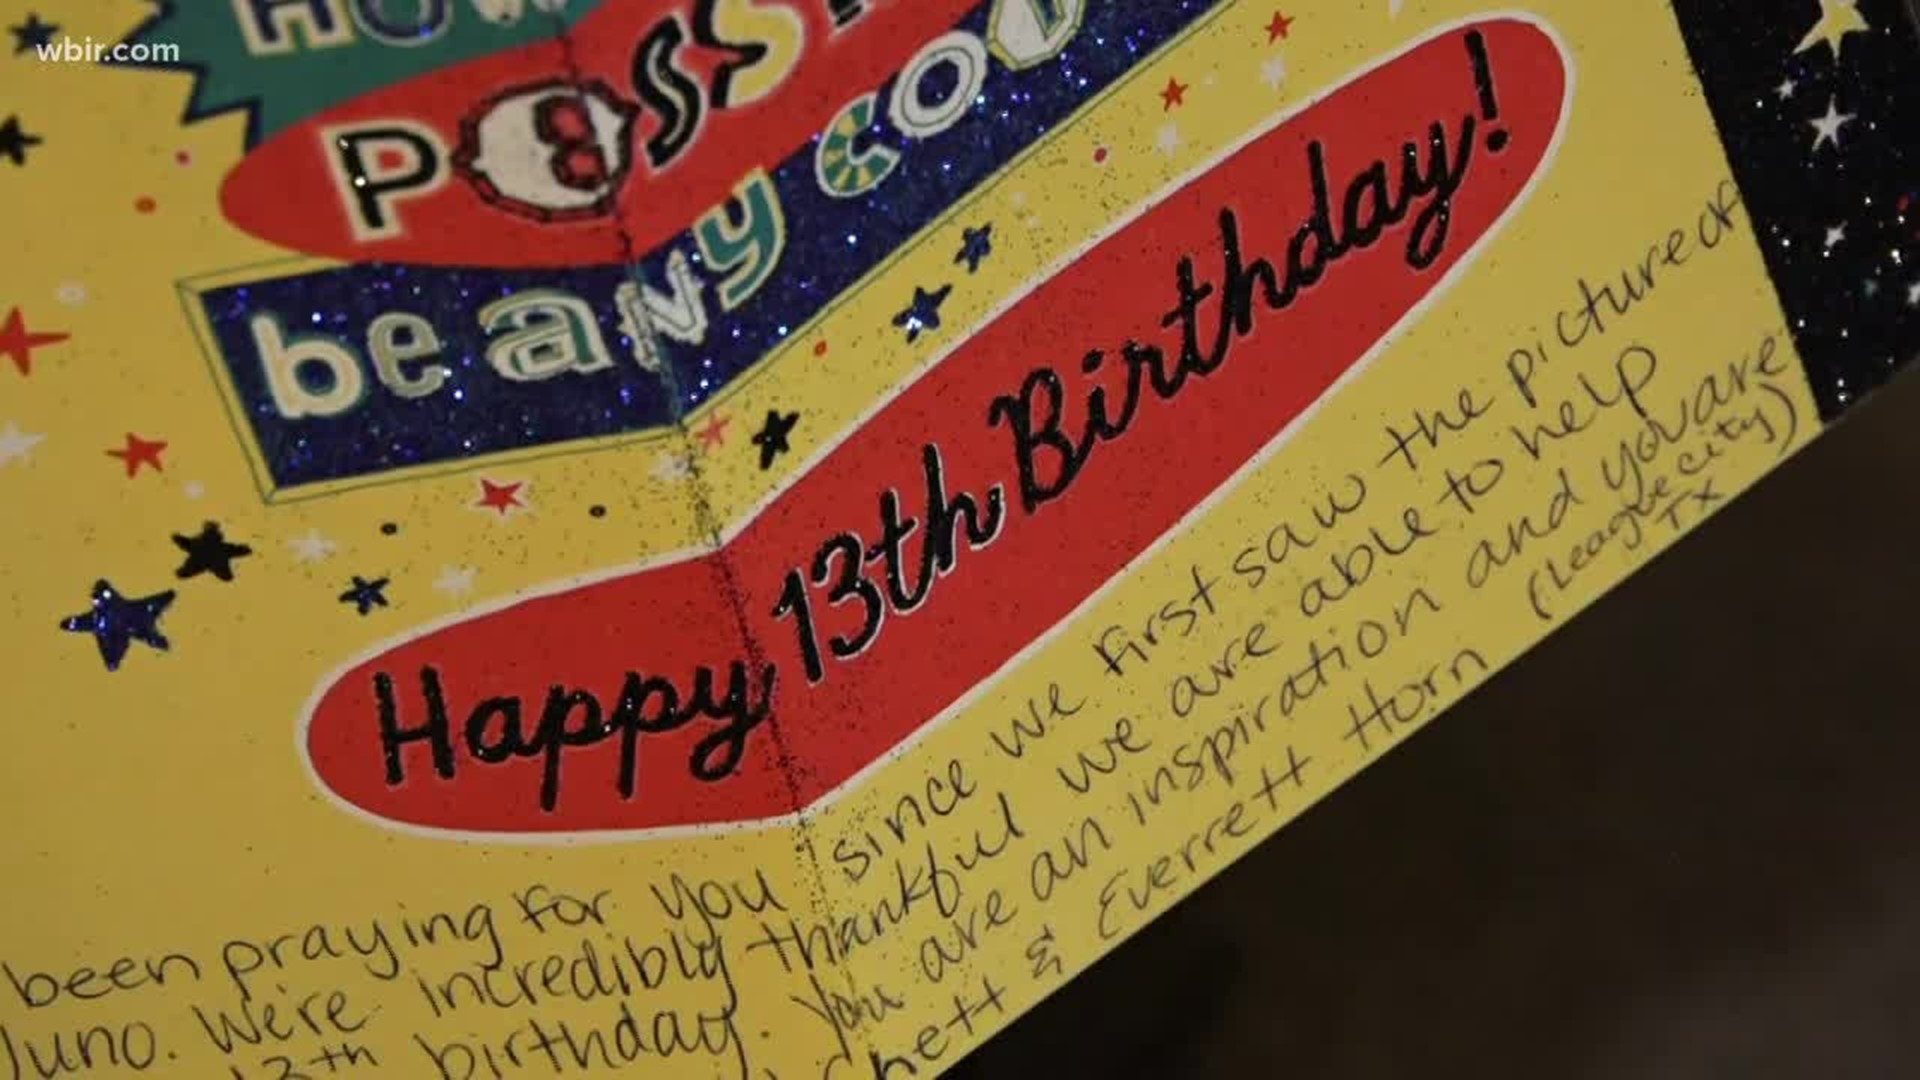 wbir.com
HOW
POSS
be aNy coo
Happy 13th Birthday!
been praying for you since we first saw the picture of
Juno. We're incredibly thankful we are able to help
13th birthday. You are an inspiration and you are
hett & Everrett Horn (League city)
TX